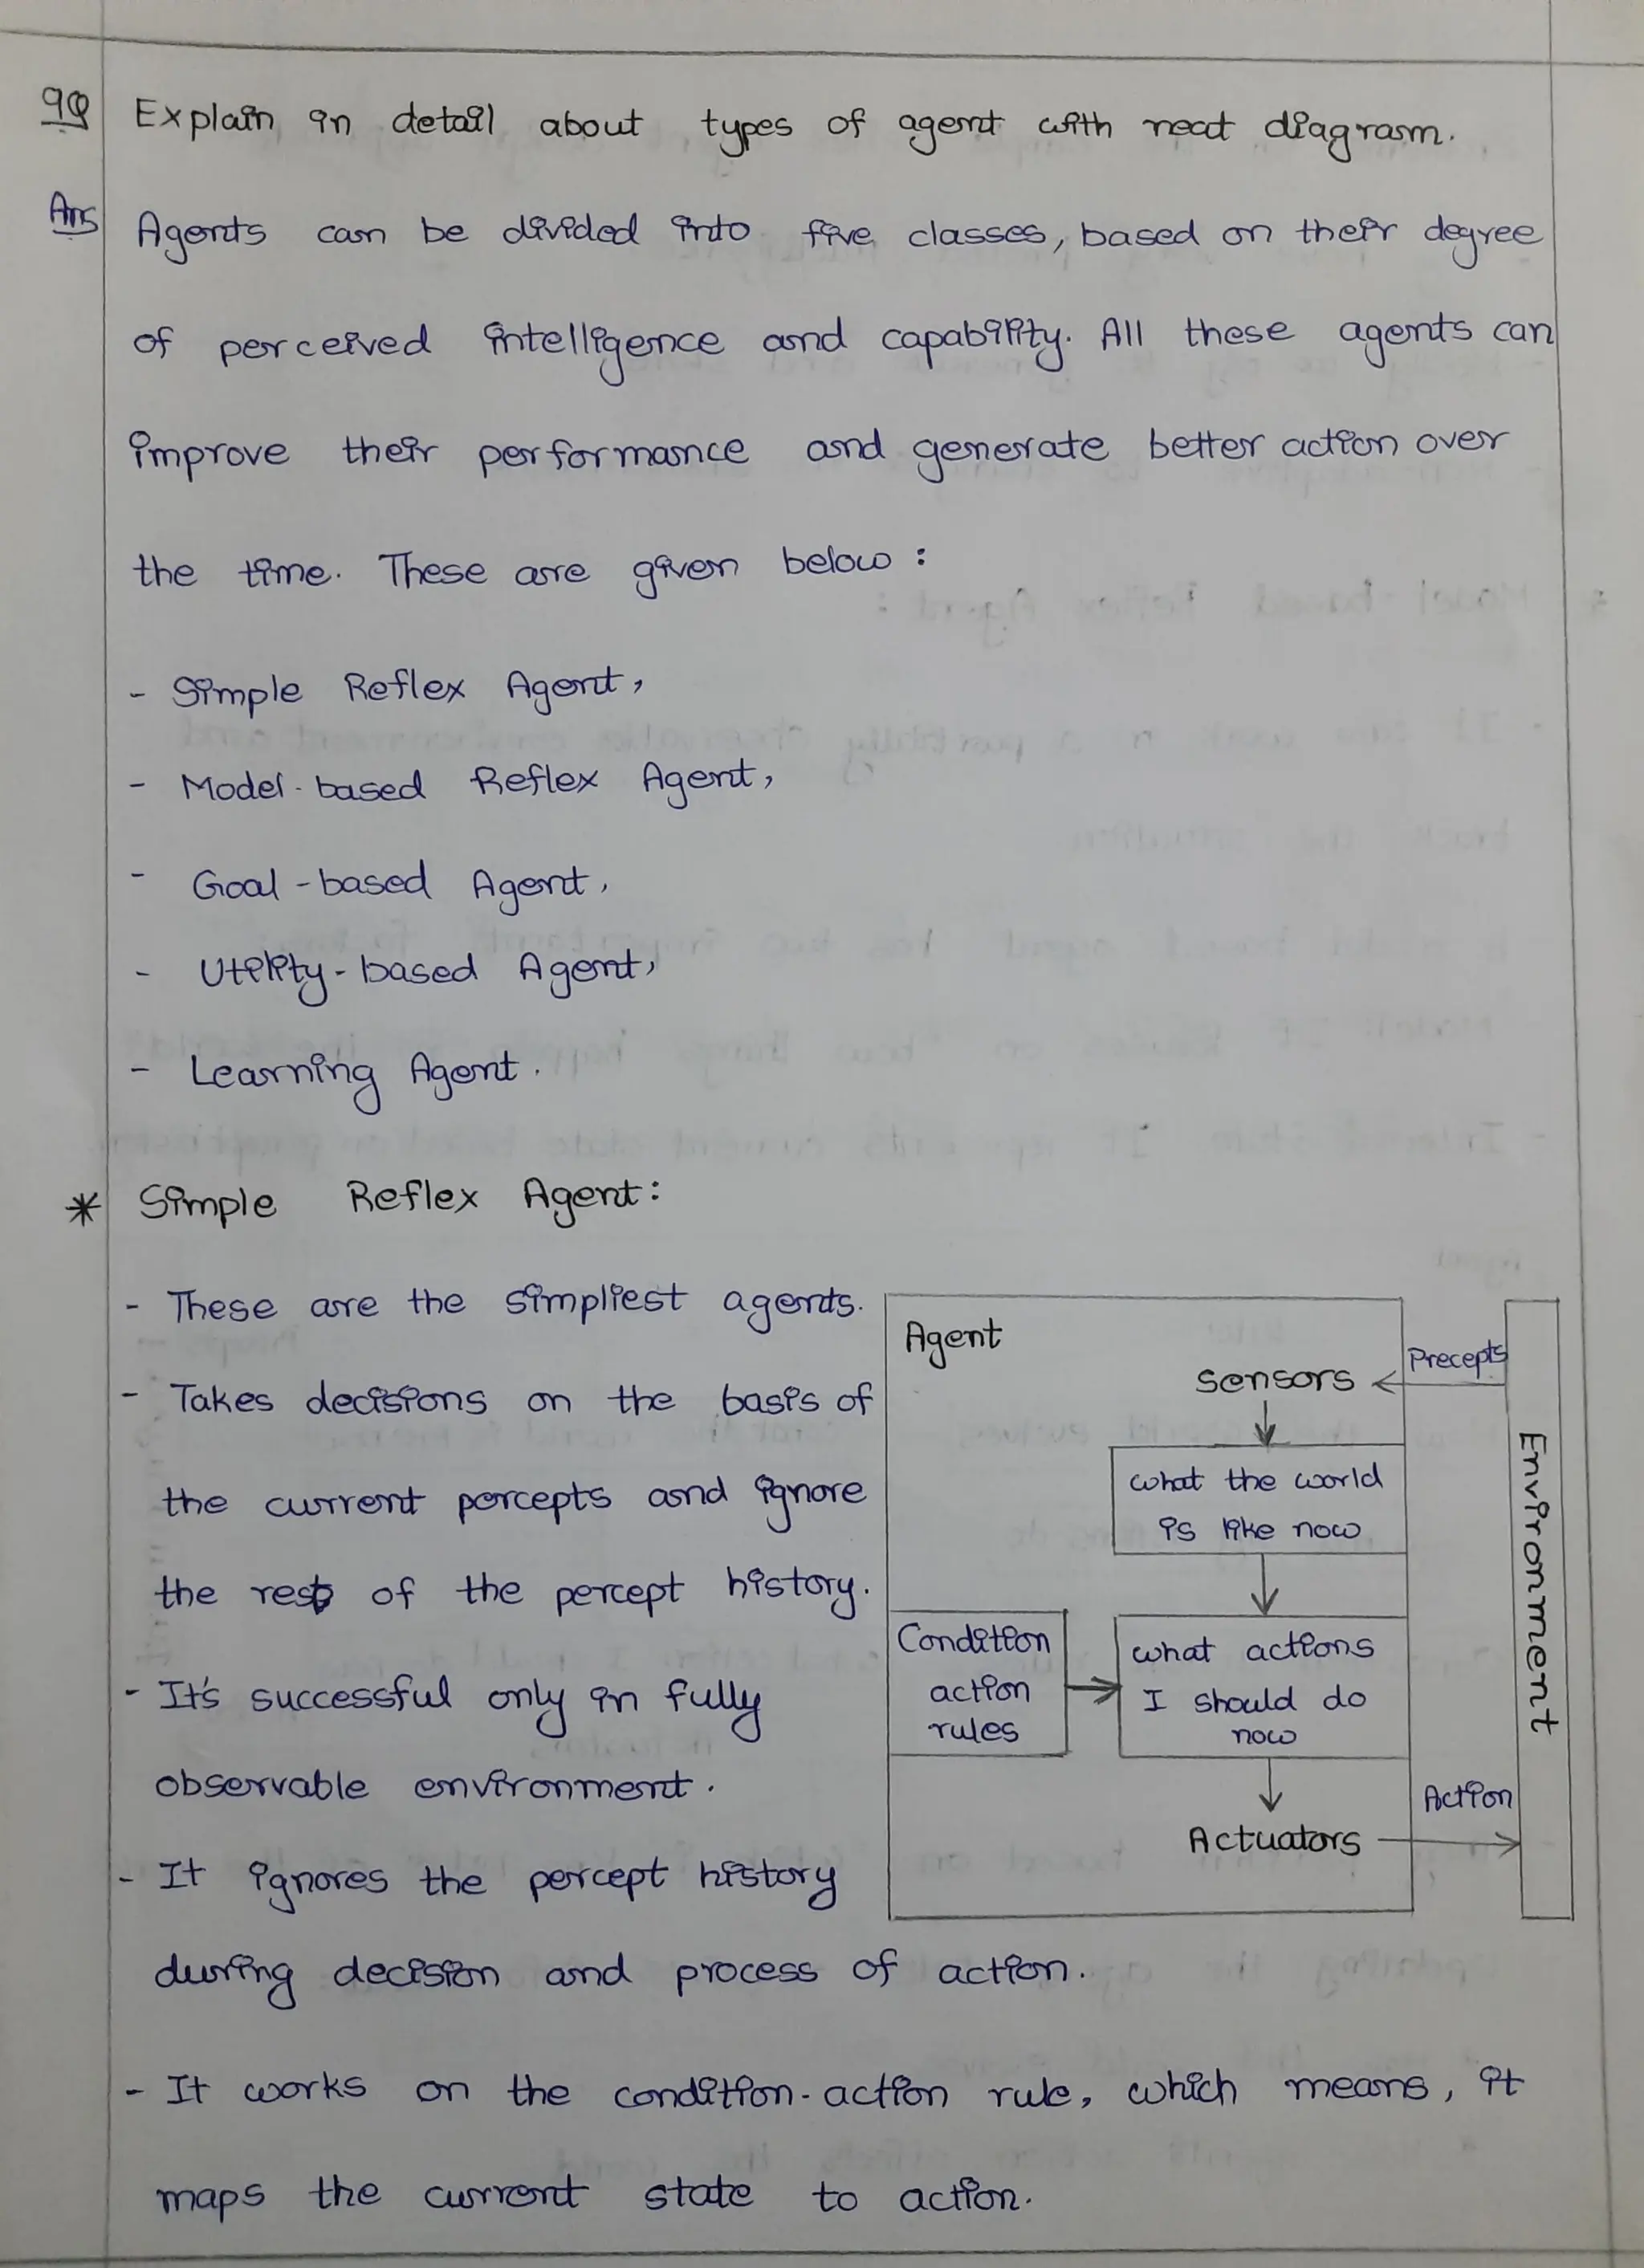 9Q Explain in detail about types of agent with neat diagram.
Ans Agents can be divided into five classes, based on their degree
of perceived intelligence and capability. All these agents can
improve their performance and generate better action over
the time. These are given below :
- Simple Reflex Agent,
- Model-based Reflex Agent,
- Goal-based Agent,
- Utility-based Agent,
- Learning Agent.
* Simple Reflex Agent:
- These are the simpliest agents.
- Takes decisions on the basis of
the current percepts and ignore
the rest of the percept history.
- It's successful only in fully
observable environment.
- It ignores the percept history
during decision and process of action.
- It works on the condition-action rule, which means, it
maps the current state to action.
Agent
Sensors
Precepts
what the world
is like now
Condition
action
rules
what actions
I should do
now
Actuators
Action
Environment